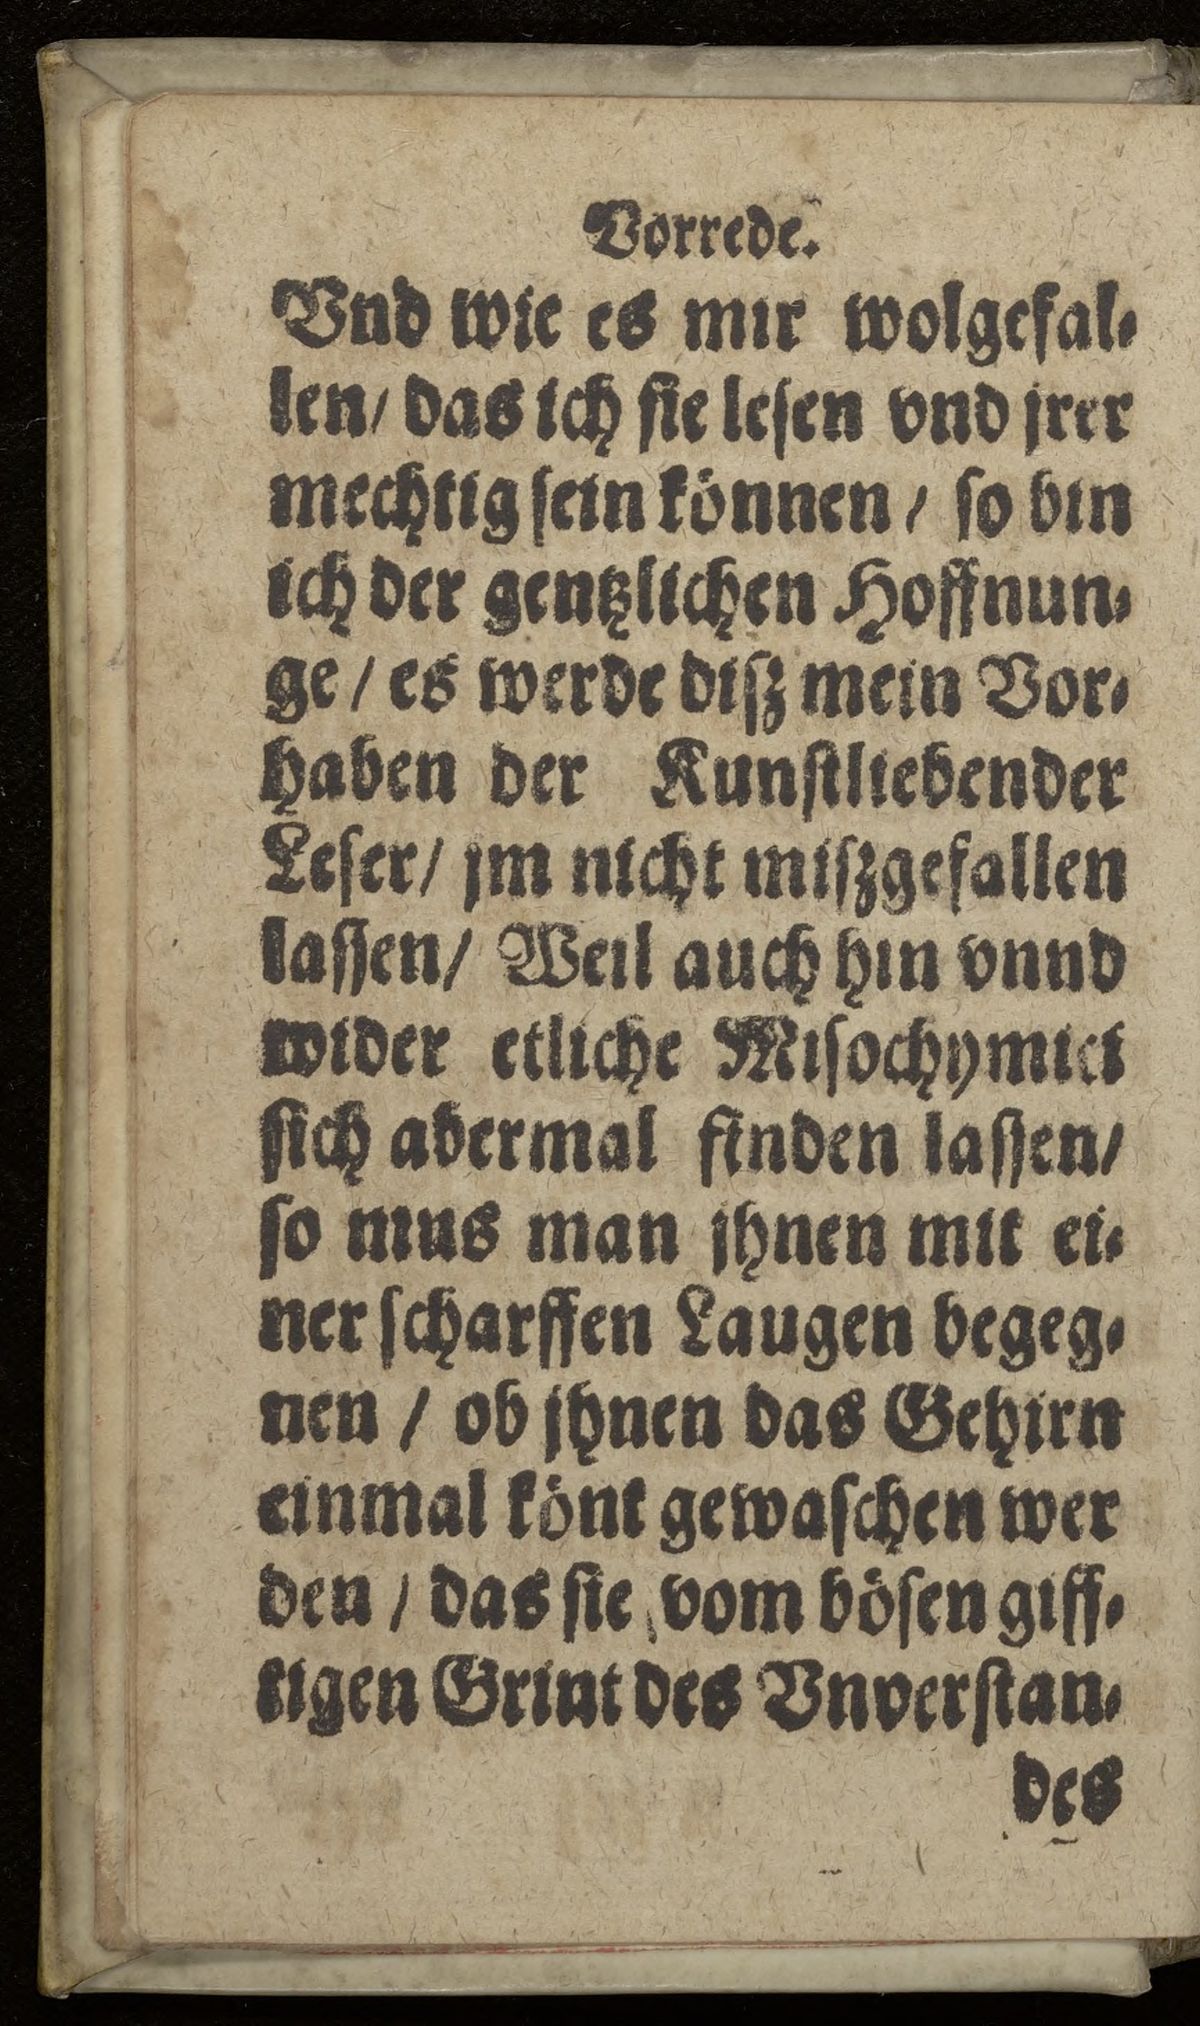 Vorrede.
Vnd wie es mir wolgefal⸗
len/ das ich sie lesen vnd jrer
mechtig sein können / so bin
ich der gentzlichen Hoffnun⸗
ge / es werde disz mein Vor⸗
haben der Kunstliebender
Leser/ jm nicht miszgefallen
lassen/ Weil auch hin vnnd
wider etliche Misochymici
sich abermal finden lassen/
so mus man jhnen mit ei⸗
ner scharffen Laugen begeg⸗
nen / ob jhnen das Gehirn
einmal könt gewaschen wer
den / das sie vom bösen giff⸗
tigen Grint des Vnverstan⸗
des